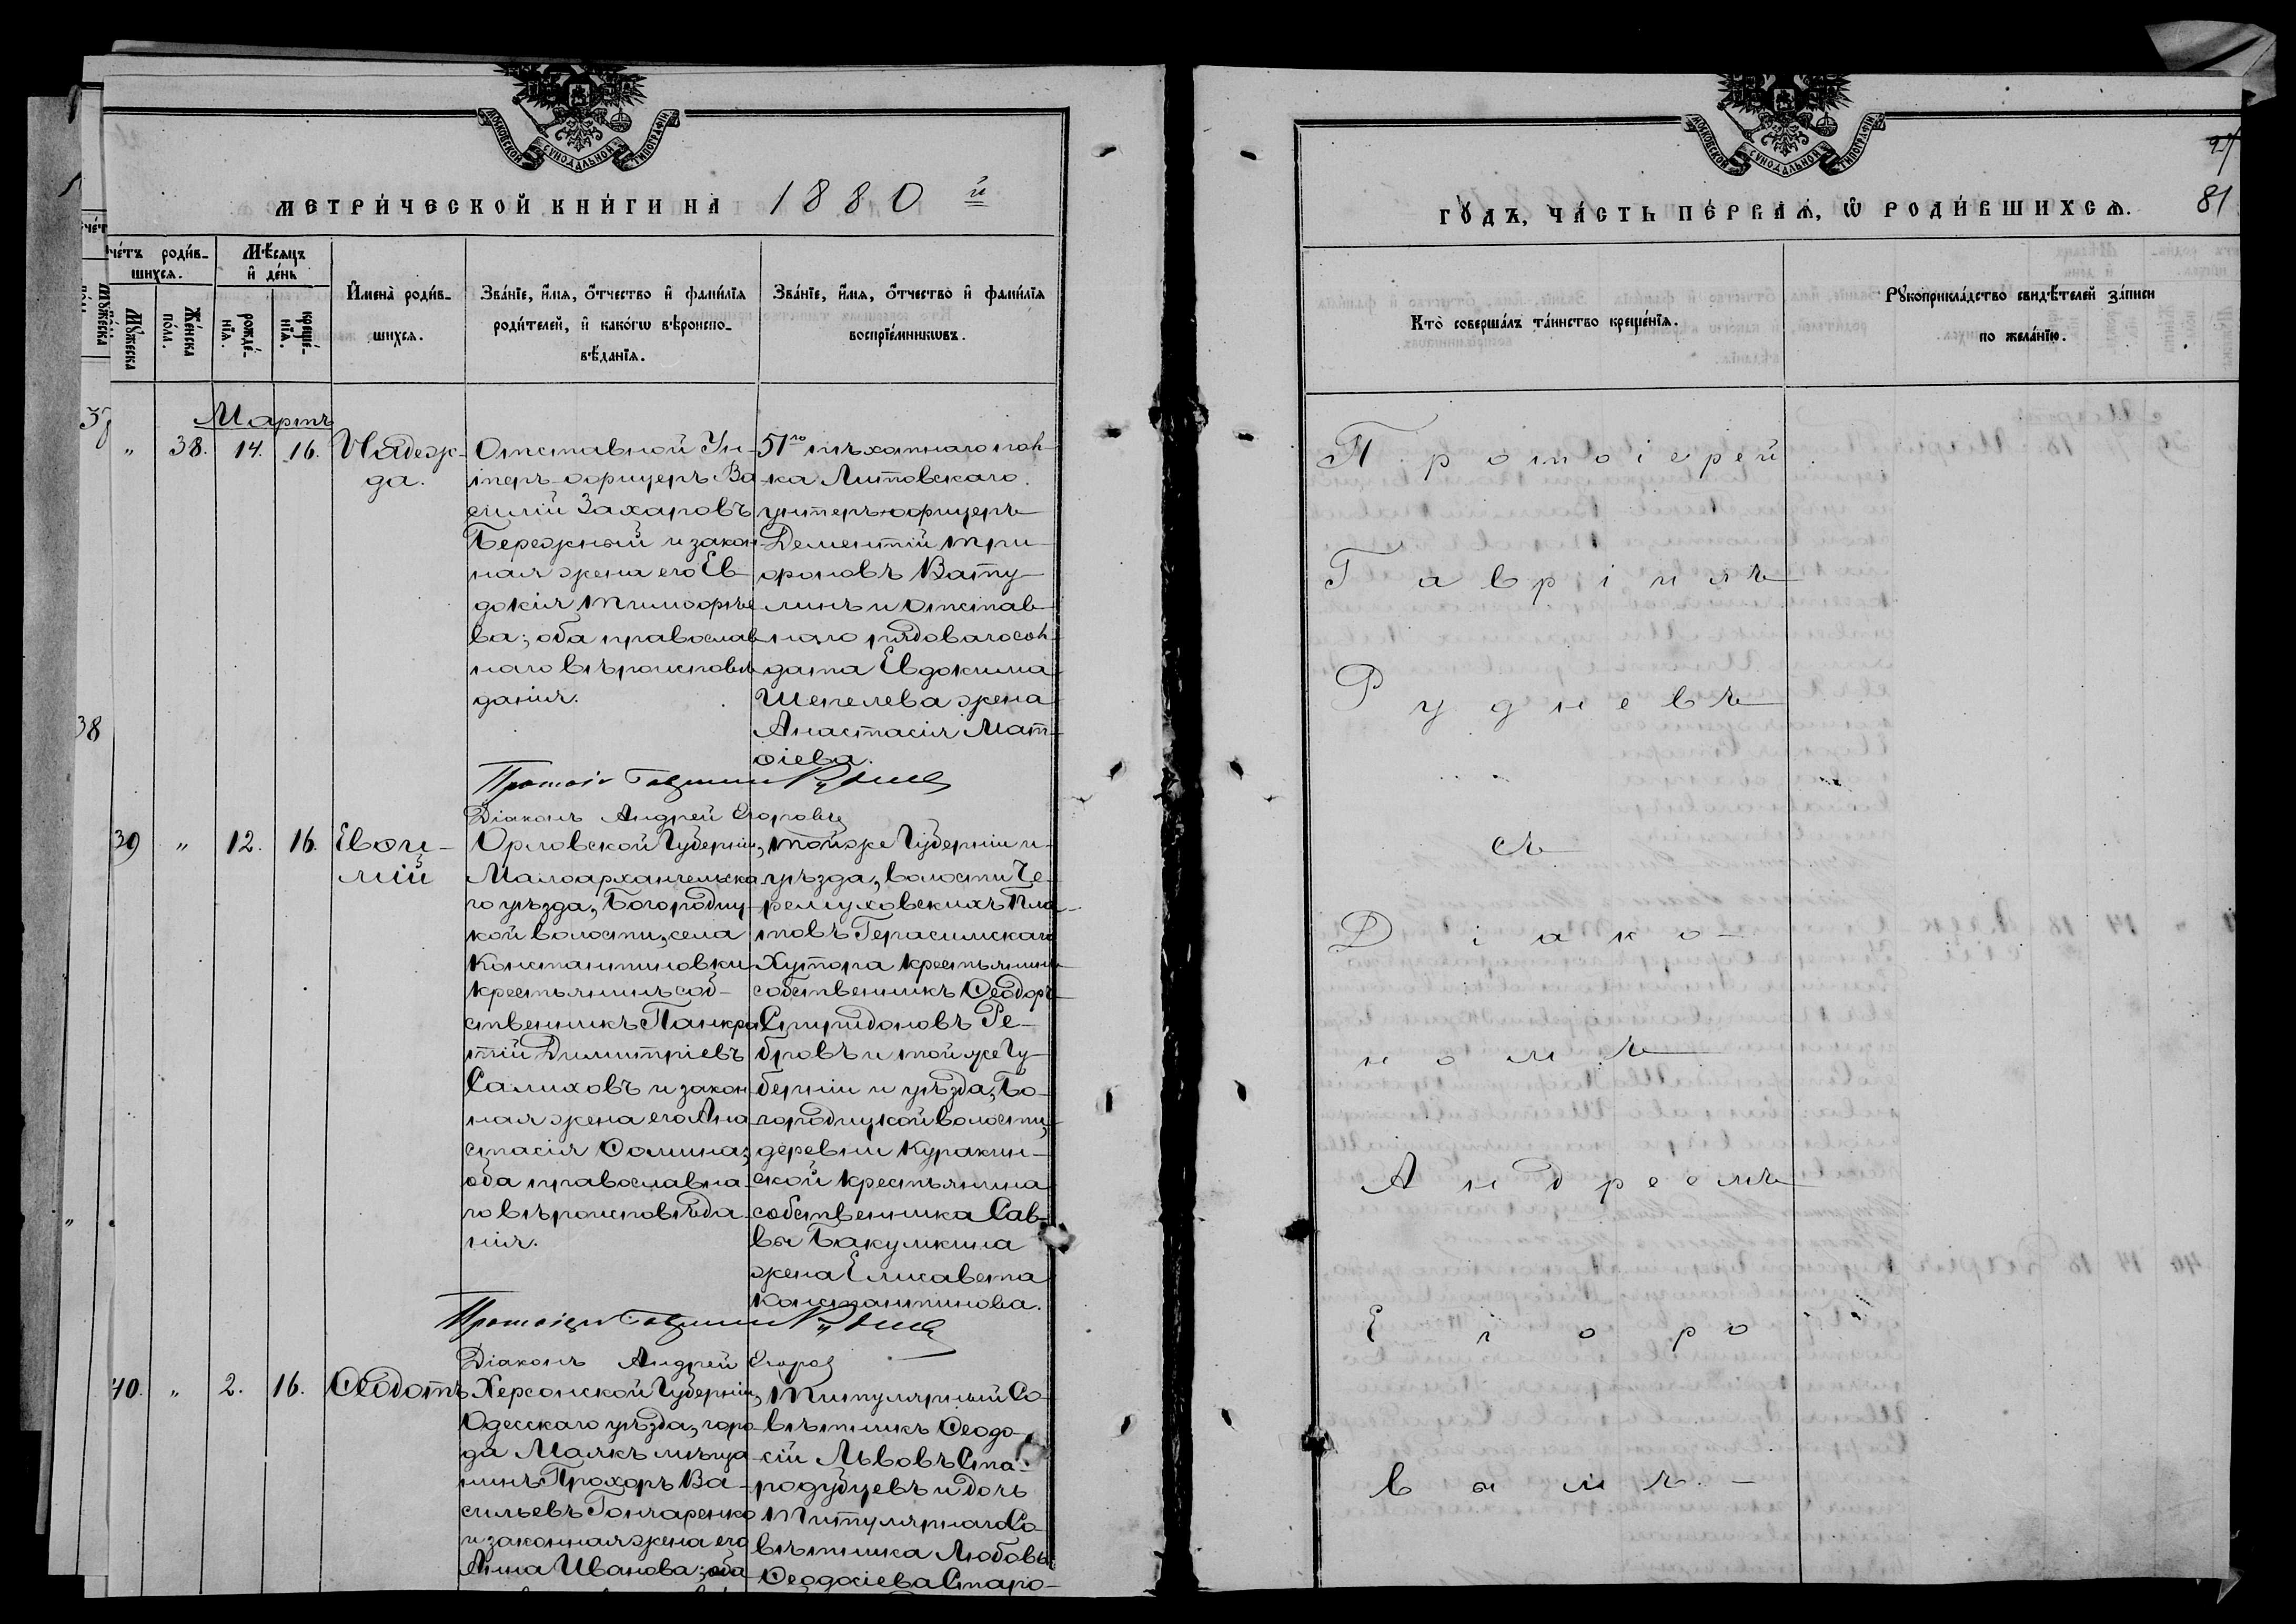 МОСКОВСКОЙ СѴНОДАЛЬНОЙ ТИПОГРАФІИ
МЕТРИ́ЧЕСКОЙ КНИ́ГИ НА 1880 й
Сче́тъ роди́вшихся.
Мꙋ́жеска по́ла.
Же́нска по́ла.
Мѣ́сяцъ и҆ де́нь
рожде́нїя.
креще́нїя.
И҆мена̀ роди́в-
шихся.
Зва́нїе, и҆́мя, ѻ҆́тчество и҆ фами́лїя
роди́телей, и҆ како́гѡ вѣроиспо-
вѣ́данїя.
Зва́нїе, и҆́мя, ѻ҆́тчество и҆ фами́лїя
воспрїе́мникѡвъ.
Мартъ
„ 38. 14. 16.
Надеж-
да.
Отставной Ун-
теръ-офицеръ Ва
силій Захаровъ
Бережный и закон
ная жена его Ев-
докія Тимофѣе
ва; оба православ
наго вѣроисповѣ
данія.
51го пѣхотнаго пол-
ка Литовскаго
унтеръ-офицеръ
Дементій Три-
фоновъ Вату-
линъ и отстав-
наго рядоваго сол-
дата Евдокима
Шепелева жена
Анастасія Мат-
ѳіева.
Протоіе Гавриил Руднев
Діаконъ Андрей Егоровъ
39 „ 12. 16.
Евѳи-
мій
Орловской Губерніи,
Малоархангельска
го уѣзда, Богородиц-
кой волости, села
Константиновки
крестьянинъ соб-
ственникъ Панкра
тій Димитріевъ
Салиховъ и закон
ная жена его Ана
стасія Фомина;
оба православна-
го вѣроисповѣда-
нія.
той же Губерніи и
уѣзда, волости Че-
ремуховскихъ Пла-
товъ Герасимскаго
Хутора крестьянинъ
собственникъ Ѳеодоръ
Спиридоновъ Ре-
бровъ и той же Гу-
берніи и уѣзда, Бо-
городицкой волости,
деревни Куракин-
ской крестьянина
собственника Сав-
вы Бакумкина
жена Елисавета
Константинова.
Протоіер Гавриил Руднев
Діаконъ Андрей Егоров
40. „ 2. 16.
Ѳеодотъ
Херсонской Губерніи,
Одесскаго уѣзда, горо
да Маякъ мѣща
нинъ Прохоръ Ва-
сильевъ Гончаренко
и законная жена его
Анна Иванова; оба
Титулярный Со-
вѣтникъ Ѳеодо-
сій Львовъ Ста-
родубцевъ и дочь
Титулярнаго Со-
вѣтника Любовь
Ѳеодосіева Старо-
МОСКОВСКОЙ СѴНОДАЛЬНОЙ ТИПОГРАФІИ
ГО́ДЪ, ЧА́СТЬ ПЕ́РВАЯ, Ѡ҆ РОДИ́ВШИХСЯ.
81
Кто̀ соверша́лъ та́инство креще́нїя.
Рꙋкоприкла́дство свидѣ́телей за́писи
по жела́нїю.
Протоіерей
Гавріилъ
Рудневъ
съ
Діако-
номъ
Андреемъ
Егоро
вымъ.